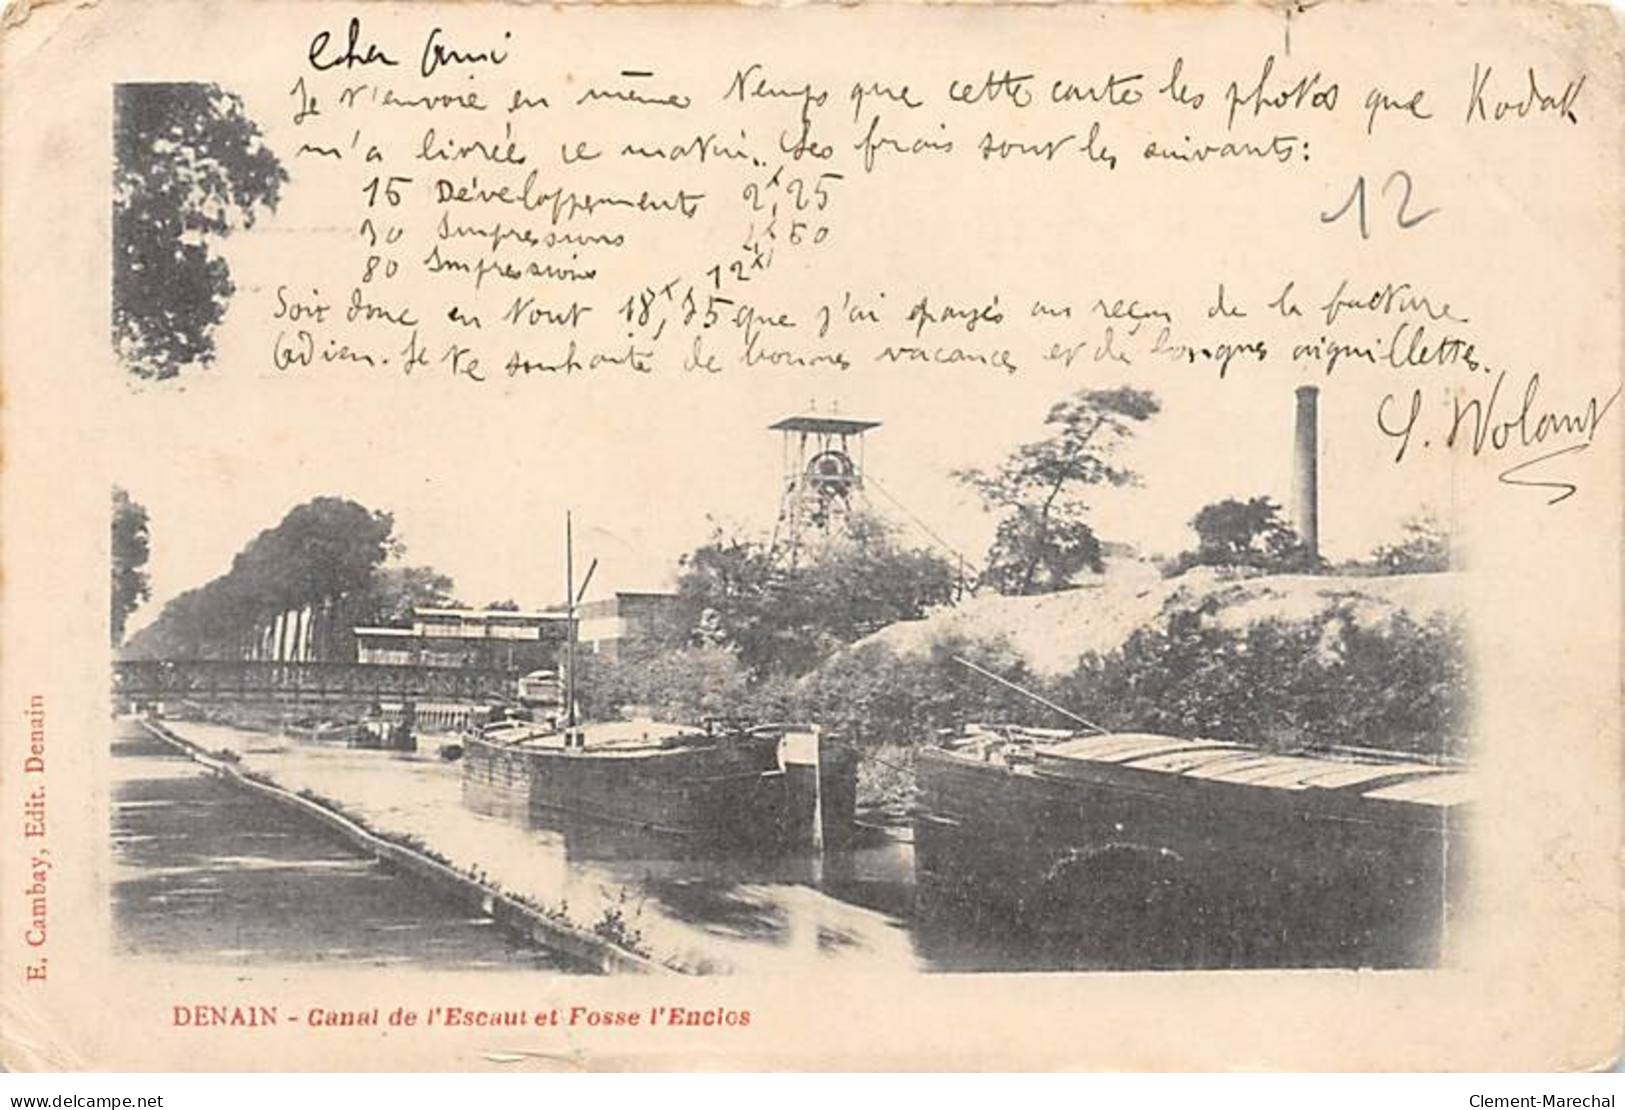 Cher Ami
Je t'envoie en même temps que cette carte les photos que Kodak
m'a livrées ce matin. Les frais sont les suivants:
15 Développements 2f,25
30 Impressions 4f50
80 Impressions 12f
12
Soit donc en tout 18f,75 que j'ai payés au reçu de la facture
Adieu. Je te souhaite de bonnes vacances et de longues aiguillettes.
E. Cambay, Edit. Denain
DENAIN - Canal de l'Escaut et Fosse l'Enclos
delcampe.net
Clement-Marechal